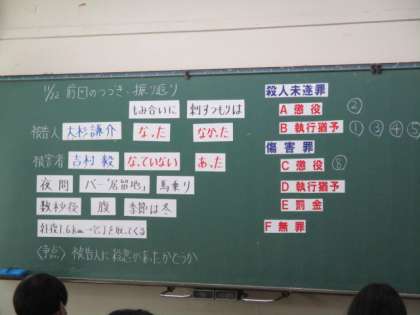 11/22 前回のつづき、振り返り
もみ合いに 刺すつもりは
被告人 大杉謙介 なった なかった
被害者 吉村毅 なっていない あった
夜間 バー「居留地」 馬乗り
数秒後 腹 季節は冬
往復1.6km→包丁を取ってくる
〈争点〉被告人に殺意があったかどうか
殺人未遂罪
A 懲役 ②
B 執行猶予 ① ③ ④ ⑤
傷害罪
C 懲役 ⑥
D 執行猶予
E 罰金
F 無罪